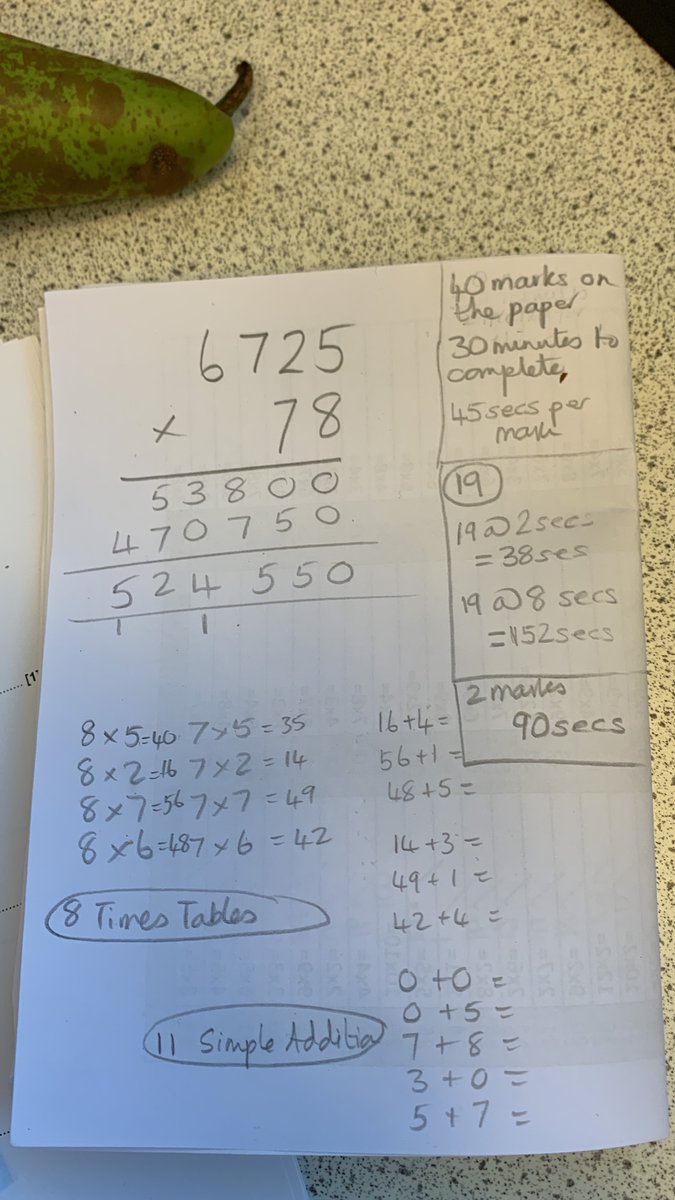 6725
× 78
53800
470750
524550
1 1
40 marks on
the paper
30 minutes to
complete,
45 secs per
mark
19
19 @ 2 secs
= 38 ses
19 @ 8 secs
= 152 secs
2 marks
90 secs
8 × 5 = 40 7 × 5 = 35
8 × 2 = 16 7 × 2 = 14
8 × 7 = 56 7 × 7 = 49
8 × 6 = 48 7 × 6 = 42
8 Times Tables
16 + 4 =
56 + 1 =
48 + 5 =
14 + 3 =
49 + 1 =
42 + 4 =
11 Simple Additio
0 + 0 =
0 + 5 =
7 + 8 =
3 + 0 =
5 + 7 =